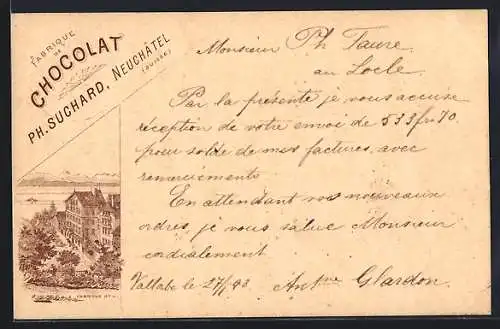 FABRIQUE
DE
CHOCOLAT
PH. SUCHARD, NEUCHÂTEL
(SUISSE)
Monsieur Ph Faure
au Locle
Par la présente je vous accuse
réception de votre envoi de 533 fr 70
pour solde de mes factures avec
remerciements
En attendant vos nouveaux
ordres, je vous salue Monsieur
cordialement
le 27/ 93 Antne Glardon.